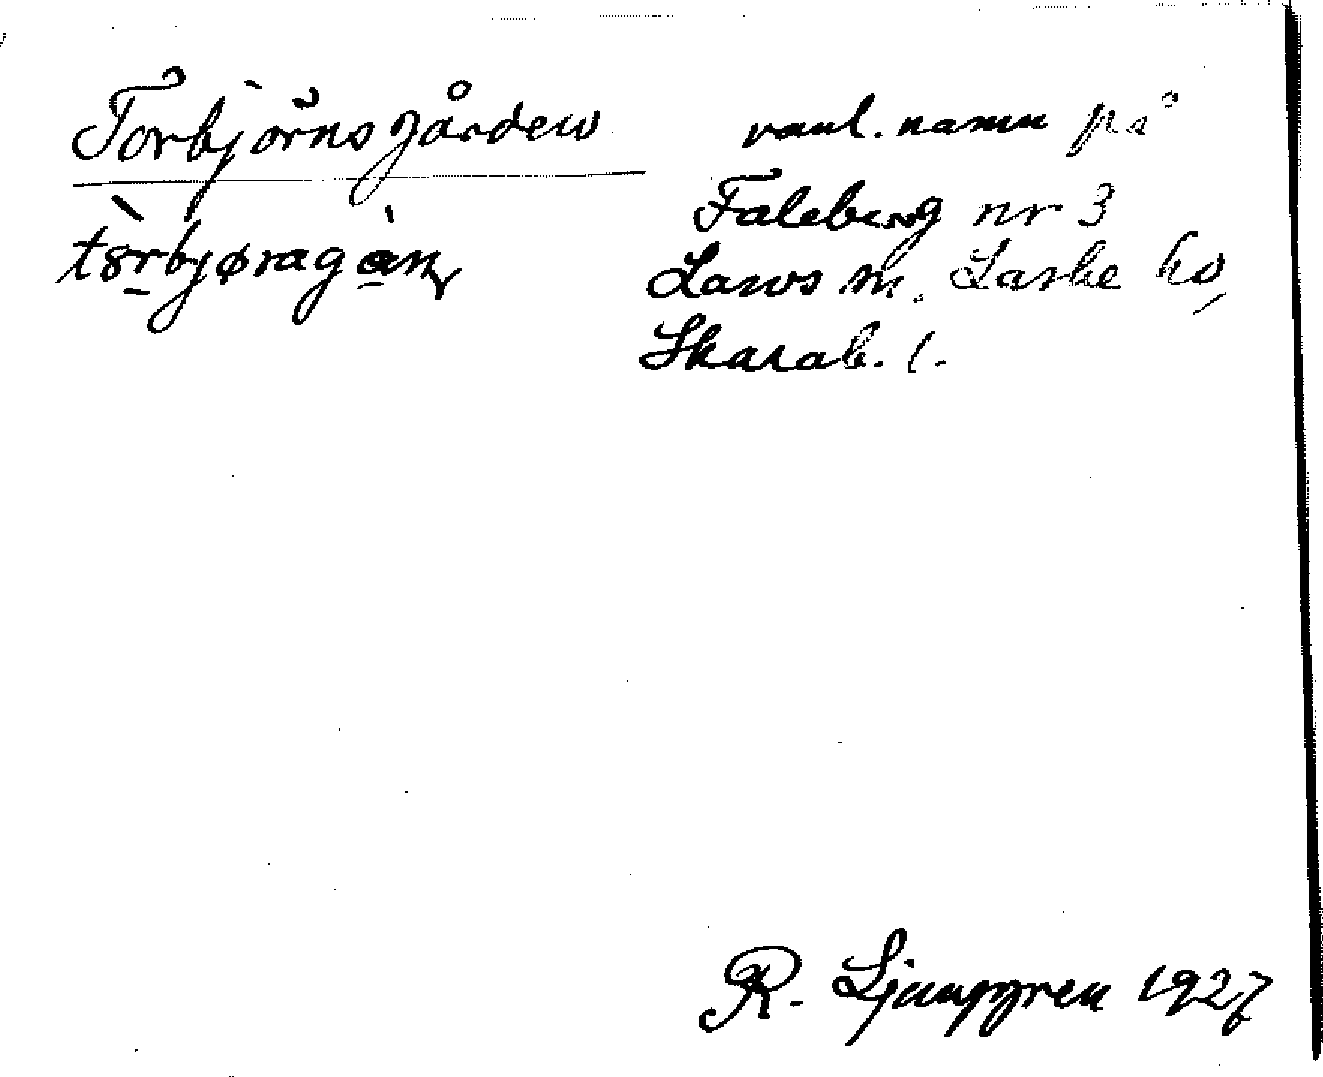 Torbjörnsgården vanl. namn på
Faleberg nr 3
tɤrbjøragan Laws m. Laske hd,
Skarab. l.
R. Ljunggren 1927